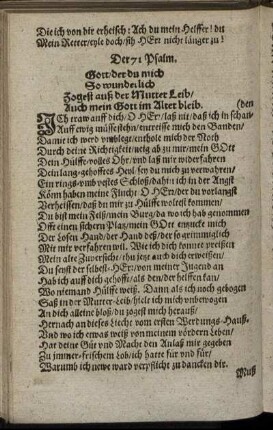 Die ich von dir erheisch: Ach du mein Helffer! du
Mein Retter/eyle doch/sih HErr nicht länger zu!
Der 71 Psalm.
Gott/der du mich
So wunderlich
Zogest auß der Mutter Leib/
Auch mein Gott im Alter bleib. (den
ICh traw auff dich/O HErr/laß nit/daß ich in schan-
Auff ewig müsse stehn/entreisse mich den Banden/
Damit ich werd umblegt/enthole mich der Noth
Durch deine Richtigkeit/neig ab zu mir/mein GOtt
Dein Hülffvolles Ohr/und laß mir widerfahren
Dein lang-gehofftes Heyl/sey du mich zu verwahren/
Ein rings-umbvestes Schloß/dahin ich in der Angst
Könn haben meine Flucht: O HErr/der du vorlangst
Verheissen/daß du mir zu Hülffe woltest kommen/
Du bist mein Felß/mein Burg/da wo ich hab genommen
Offt einen sichern Platz/mein GOtt entzuckt mich
Der Losen Hand/der Hand deß/der so grimmiglich
Mit mir verfahren wil. Wie ich dich konnte preissen
Mein alte Zuversicht/thu jetzt auch dich erweissen/
Du seyst der selbe/HErr/von meiner Jugend an
Hab ich auff dich gehofft/als den/der helffen kan/
Wo niemand Hülffe weiß. Dann als ich noch gebogen
Saß in der Mutter-Leib/hiele ich mich unbewogen
An dich alleine bloß/du zogest mich herauß/
Hernach an dieses Liecht vom ersten Werdungs-Hauß.
Und wo ich etwas weiß von meinem vördern Leben/
Hat deine Güt und Macht den Anlaß mir gegeben
Zu jmmer-frischem Lob/ich hatte für und für/
Warumb ich newe ward verpflicht zu dancken dir.
Muß